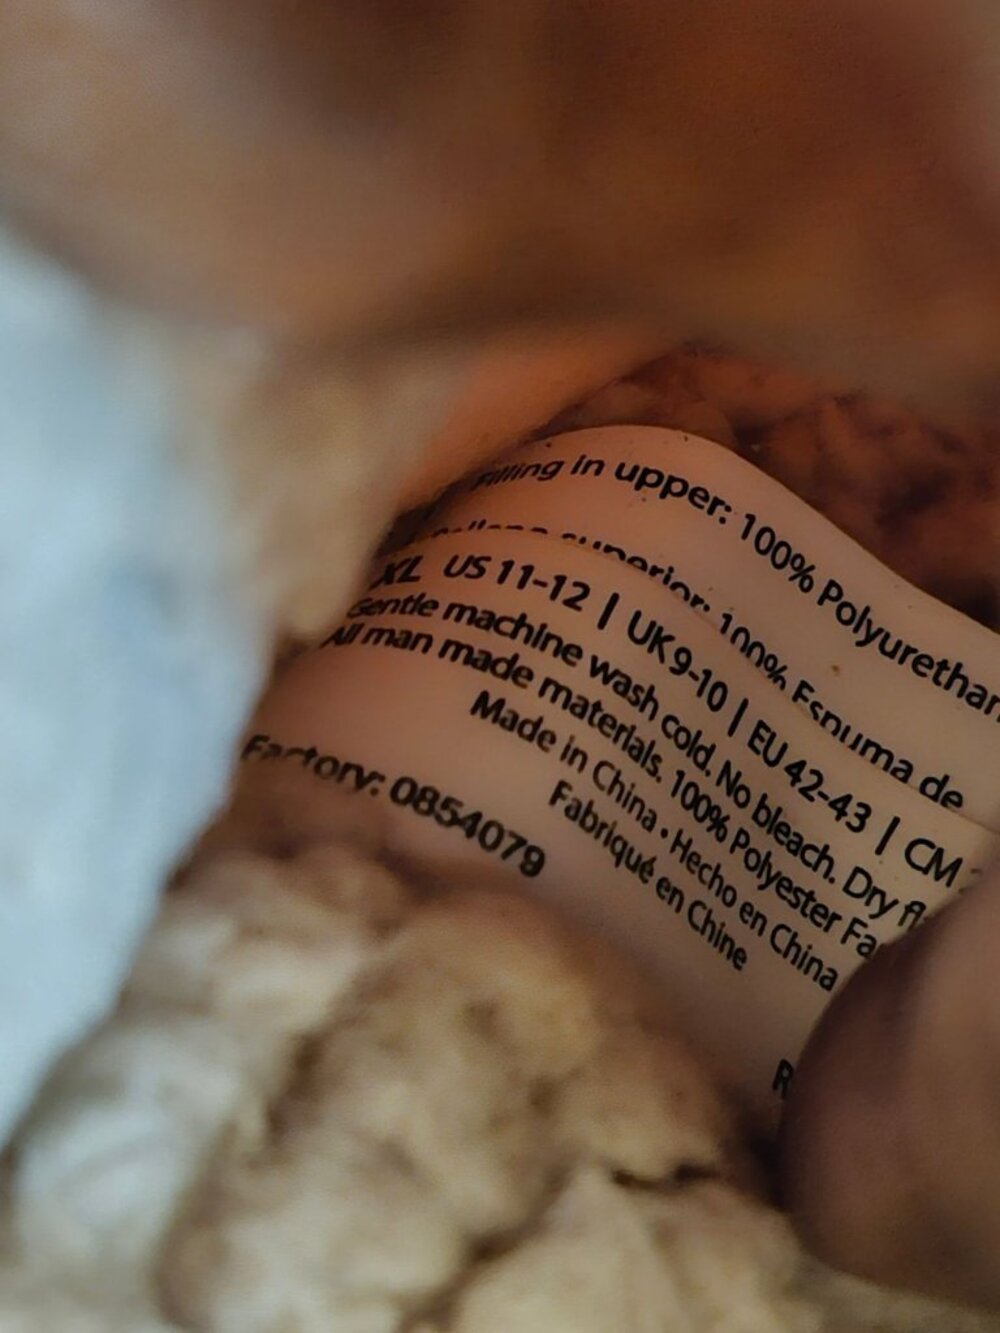 Filling in upper: 100% Polyurethan
superior: 100% Espuma de
XL US 11-12 | UK 9-10 | EU 42-43 | CM
Gentle machine wash cold. No bleach. Dry fl
All man made materials. 100% Polyester Fa
Made in China • Hecho en China
Fabriqué en Chine
Factory: 0854079
R